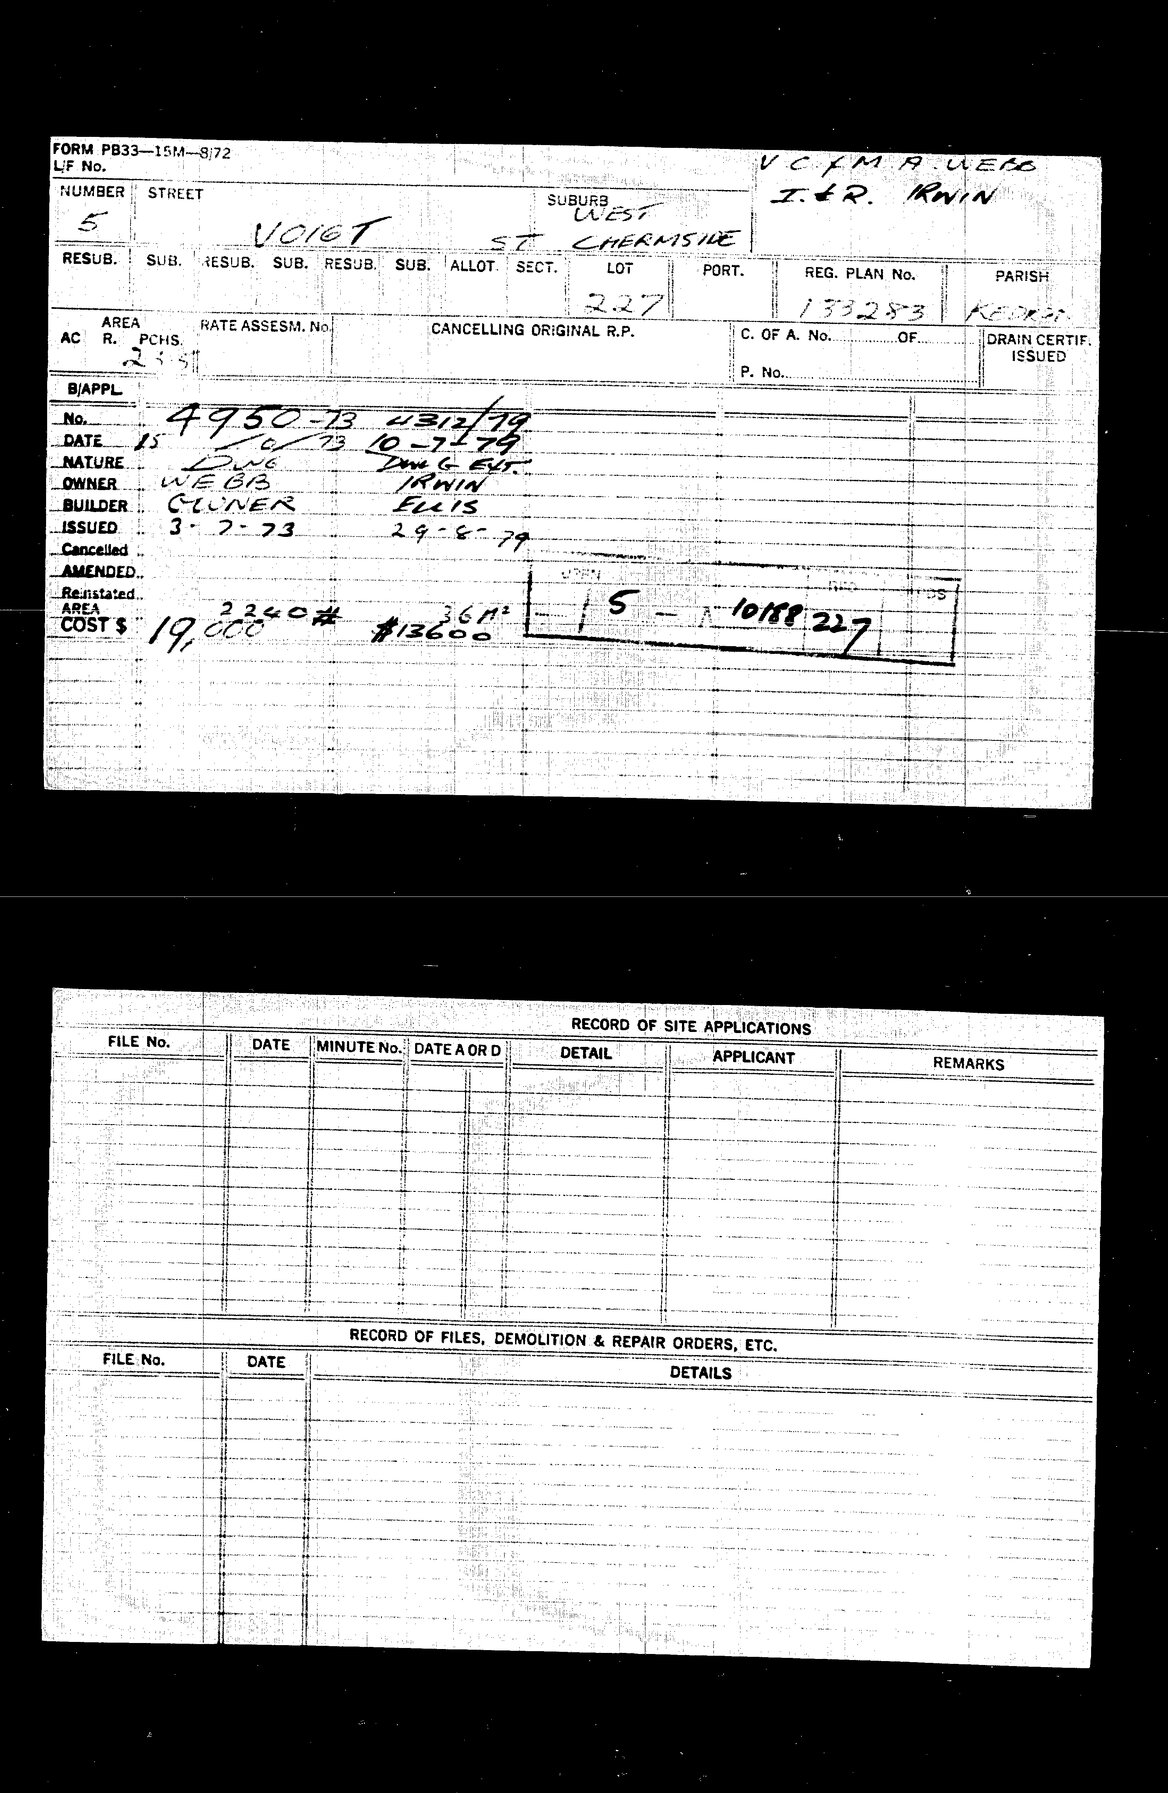 FORM PB33—15M—8/72
L/F No.
V C & M A WEBB
I. & R. IRWIN
NUMBER STREET SUBURB
5 VOIGT ST WEST CHERMSIDE
RESUB. SUB. RESUB. SUB. RESUB. SUB. ALLOT. SECT. LOT PORT. REG. PLAN No. PARISH
227 133283 KEDRON
AREA RATE ASSESM. No. CANCELLING ORIGINAL R.P. C. OF A. No. OF DRAIN CERTIF. ISSUED
AC R. PCHS.
P. No.
B/APPL.
No. 4950-73 4312/79
DATE 15 / /73 10-7-79
NATURE DWG DWG EXT.
OWNER WEBB IRWIN
BUILDER ELLIS
ISSUED 3-7-73 29-8-79
Cancelled
AMENDED
Reinstated
AREA 2240 # 36 M²
COST $ 19,000 $13600
5 — 10188 227
RECORD OF SITE APPLICATIONS
FILE No. DATE MINUTE No. DATE A OR D DETAIL APPLICANT REMARKS
RECORD OF FILES, DEMOLITION & REPAIR ORDERS, ETC.
FILE No. DATE DETAILS